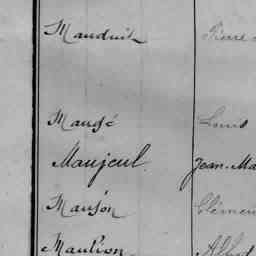 Mauduit Pierre
Maugé Louis
Maujeul. Jean-Ma
Mauson Clémen
Maulion